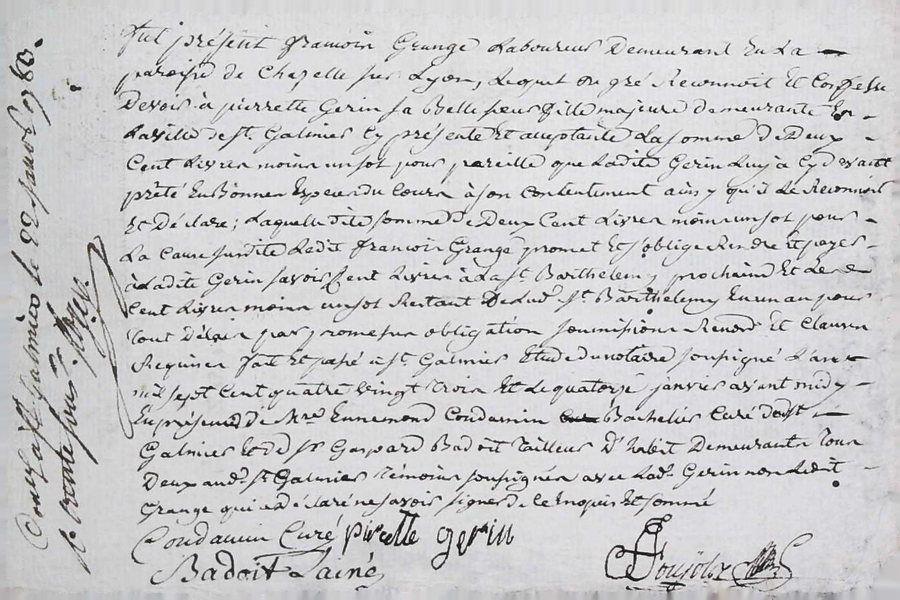 fut présent francois Grange Laboureur Demeurant En La
paroisse de Chapelle sur Lyon, Lequel de gré Reconnoit Et Confesse
Devoir à pierrette Gerin sa Belle soeur fille majeure demeurante En
La ville de st. Galmier Cy présente Et acceptante La somme De Deux
Cent Livres moins un sol pour pareille que Ladite Gerin Luy a Cy devant
prêté En Bonnes Especes du Cours à son Contentement ainsy qu'il Le Reconnoit
Et Déclare; Laquelle dite somme de Deux Cent Livres moins un sol pour
La Cause susdite Ledit francois Grange promet Et s'oblige Rendre Et payer
à Ladite Gerin savoir Cent Livres à La st. Barthelemy prochaine Et Les
Cent Livres moins un sol Restant De Lad. st. Barthelemy En un an pour
tout Délais par promesses obligation soumissions Renon. Et Clauses
Requises fait Et passé à st. Galmier Etude du notaire soussigné L'an
mil sept Cent quatre vingt trois Et Le quatorze janvier avant midy
En présence de Mre. Ennemond Condamin Bachelier Curé dudt. st
Galmier Et de sr. Gaspard Badoit Tailleur D'habit Demeurants Tous
Deux aud. st. Galmier témoins soussignés avec Lad. Gerin non Ledit
Grange qui a déclaré ne savoir signer de ce Enquis Et sommé
Condamin Curé pierette gerin
Badoit L'ainé
Controllé à st. Galmier le 22 janvr. 1783.